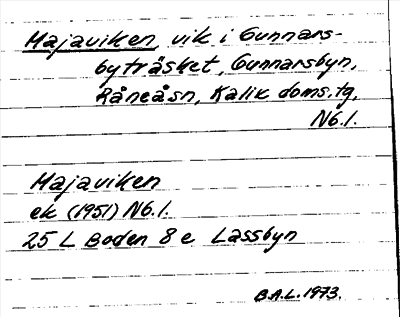 Majaviken, vik i Gunnars-
byträsket, Gunnarsbyn,
Råneåsn, Kalix doms.tg,
Nb.l.
Majaviken
ek (1951) Nb.l.
25 L Boden 8 e Lassbyn
B.A.L. 1973.